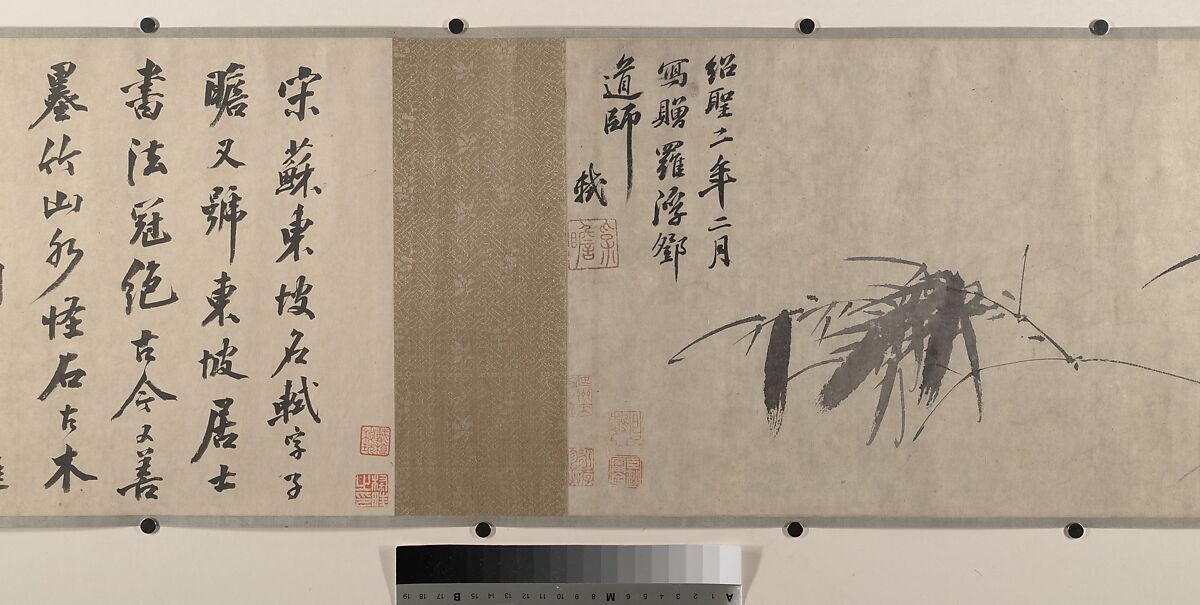 紹聖二年二月
寫贈羅浮鄧
道師
軾
宋蘇東坡名軾字子
瞻又號東坡居士
書法冠絕古今又善
墨竹山水怪石古木
A 1 2 3 4 5 6 M 8 9 10 11 12 13 14 15 B 17 18 19